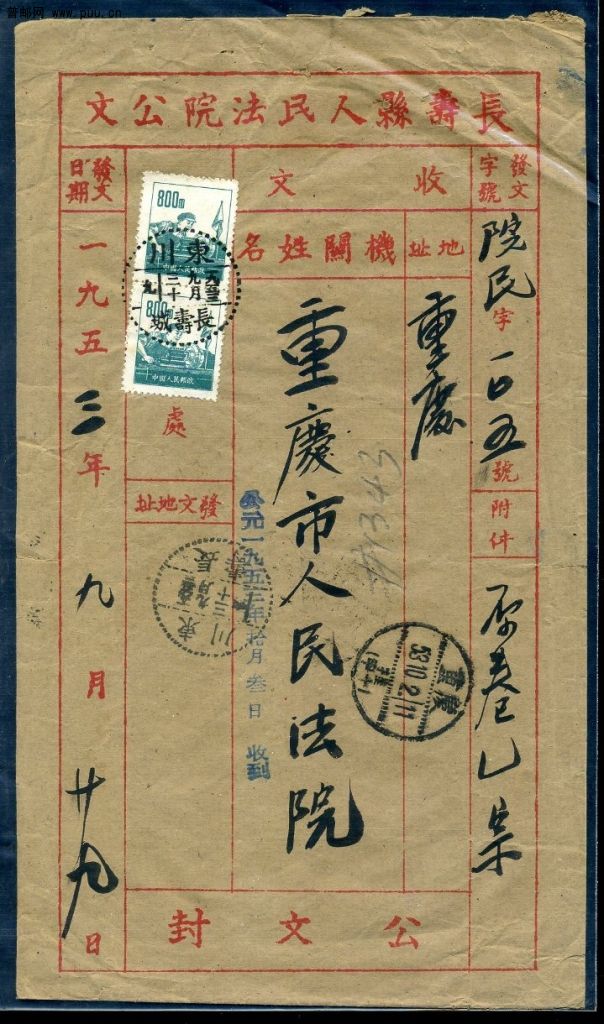 普邮网 www.puu.cn
長壽縣人民法院公文
發文字號
院民字一〇五號
附件
收文
地址
重慶
機關姓名
重慶市人民法院
800圓
中國人民郵政
800
中國人民郵政
東川
長壽城
處
發文地址
公元一九五三年拾月叁日 收到
東川
長壽
重慶
53.10.2.11
#1343
發文日期
一九五三年九月廿九日
公文封